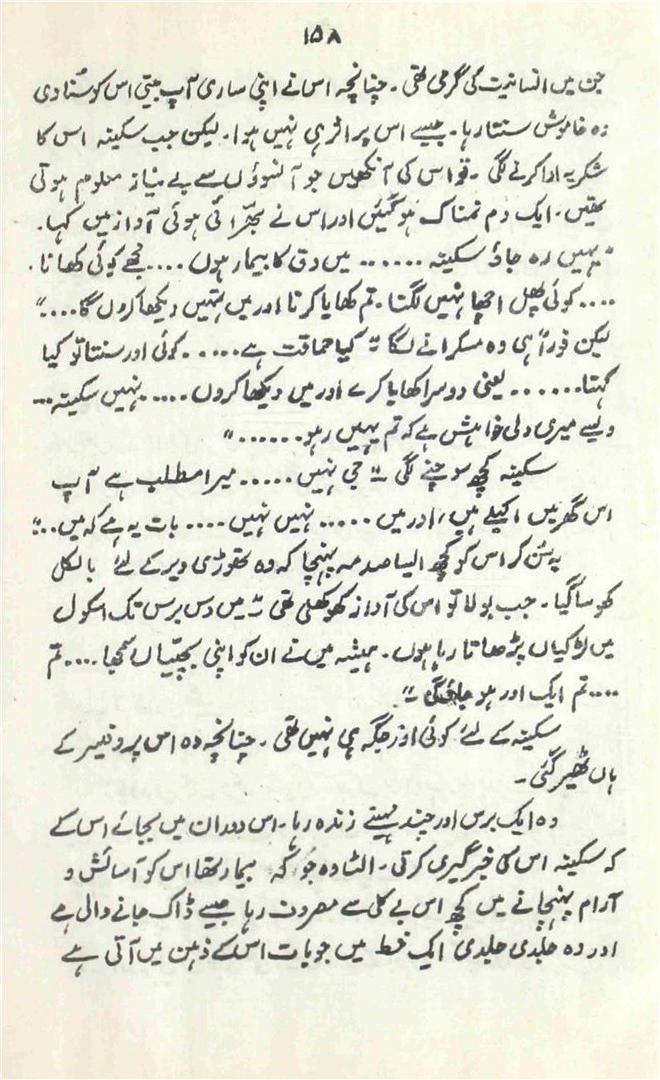 ۱۵۸
جن میں انسانیت کی گرمی تھی۔ چنانچہ اس نے اپنی ساری آپ بیتی اس کو سنا دی
وہ خاموش سنتا رہا۔ جیسے اس پر اثر ہی نہیں ہوا۔ لیکن جب سکینہ اس کا
شکریہ ادا کرنے لگی۔ تو اس کی آنکھیں جو آنسوؤں سے بے نیاز معلوم ہوتی
تھیں۔ ایک دم نمناک ہو گئیں اور اس نے بھرّائی ہوئی آواز میں کہا۔
"یہیں رہ جاؤ سکینہ ...... میں دق کا بیمار ہوں .... مجھے کوئی کھانا۔
.... کوئی پھل اچھا نہیں لگتا۔ تم کھایا کرنا اور میں تمہیں دیکھا کروں گا ...."
لیکن فوراً ہی وہ مسکرانے لگا "کیا حماقت ہے ..... کوئی اور سنتا تو کیا
کہتا ...... یعنی دوسرا کھایا کرے اور میں دیکھا کروں ..... نہیں سکینہ ...
ویسے میری دلی خواہش ہے کہ تم یہیں رہو ......"
سکینہ کچھ سوچنے لگی۔ "جی نہیں ..... میرا مطلب ہے آپ
اس گھر میں اکیلے ہیں، اور میں ..... نہیں نہیں .... بات یہ ہے کہ میں ..."
یہ سُن کر اس کو کچھ ایسا صدمہ پہنچا کہ وہ تھوڑی دیر کے لئے بالکل
کھو سا گیا۔ جب بولا تو اس کی آواز کھوکھلی تھی "میں دس برس تک اسکول
میں لڑکیاں پڑھاتا رہا ہوں۔ ہمیشہ میں نے ان کو اپنی بچیّاں سمجھا .... تم
.... تم ایک اور ہو جاؤ گی۔"
سکینہ کے لئے کوئی اور جگہ ہی نہیں تھی۔ چنانچہ وہ اس پروفیسر کے
ہاں ٹھیر گئی۔
وہ ایک برس اور چند مہینے زندہ رہا۔ اس دوران میں بجائے اس کے
کہ سکینہ اس کی خبرگیری کرتی۔ الٹا وہ جو کہ بیمار تھا اس کو آسائش و
آرام پہنچانے میں کچھ اس بے کلی سے مصروف رہا جیسے ڈاک جانے والی ہے
اور وہ جلدی جلدی ایک خط میں جو بات اس کے ذہن میں آتی ہے